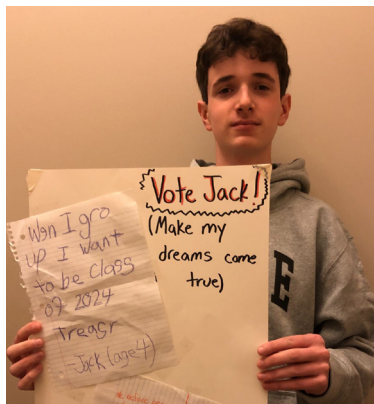 Vote Jack!
(Make my
dreams come
true)
Wen I gro
up I want
to be class
of 2024
Treasr
Jack (age 4)
E